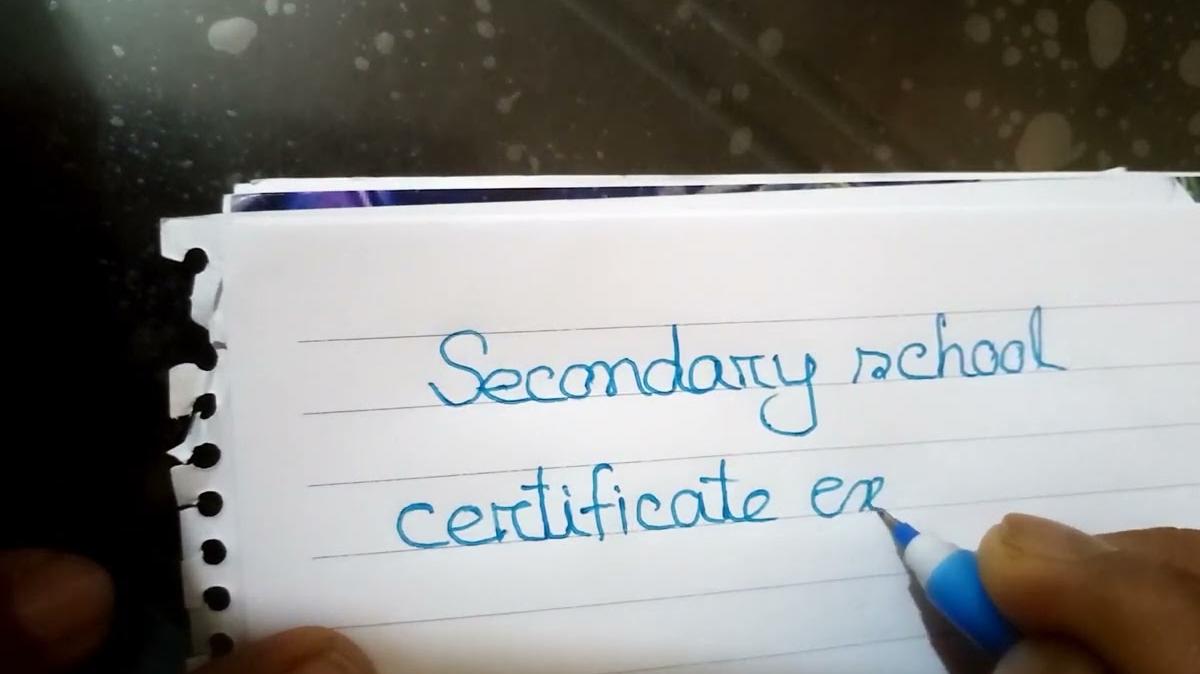 Secondary school
certificate ex